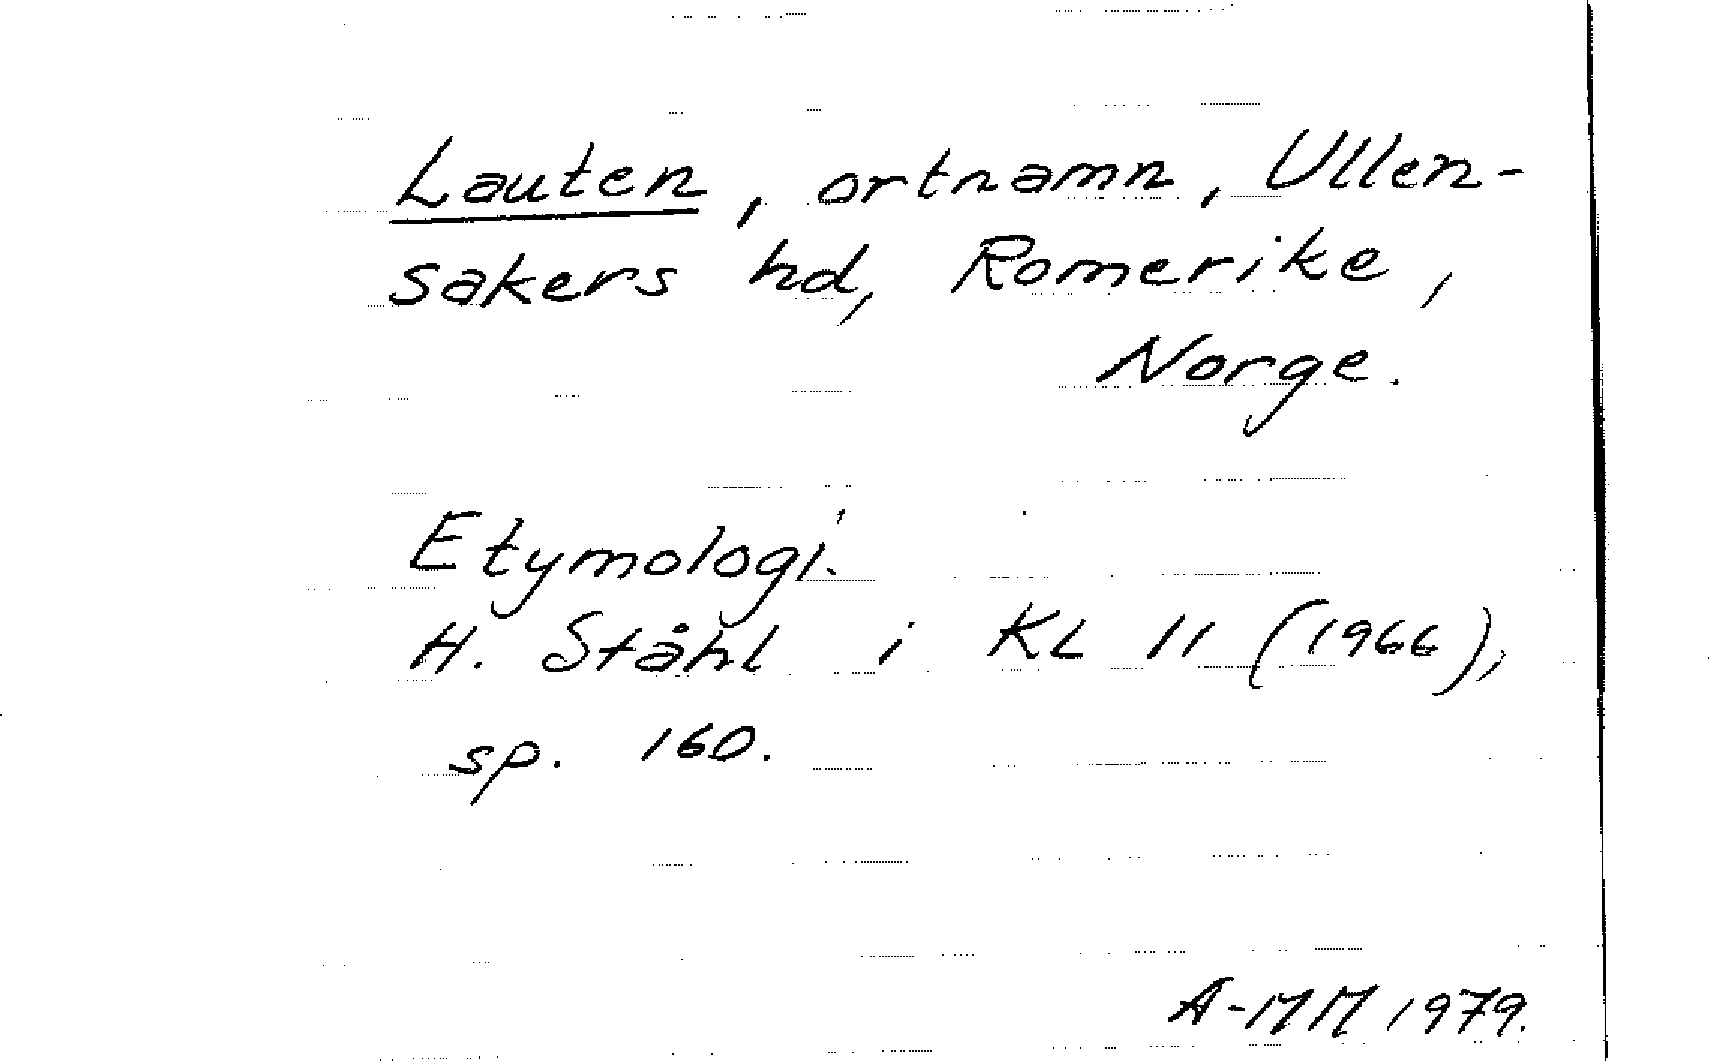 Lauten, ortnamn, Ullen-
sakers hd, Romerike,
Norge.
Etymologi.
H. Ståhl i KL 11 (1966),
sp. 160.
A-MM 1979.